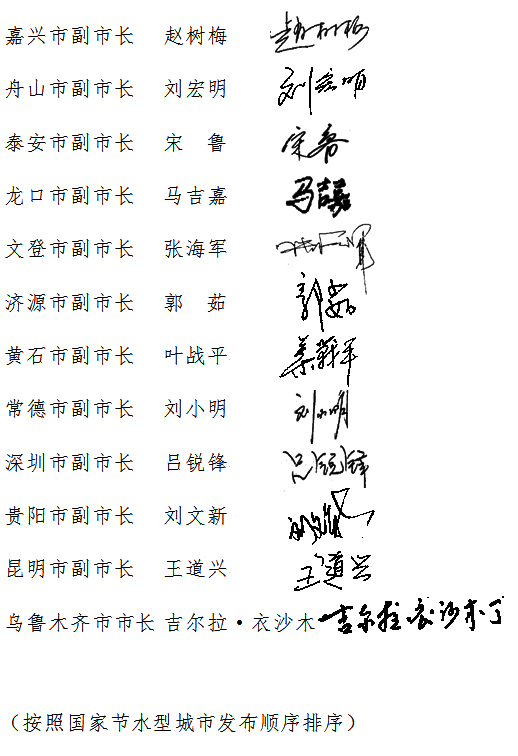 嘉兴市副市长 赵树梅 赵树梅
舟山市副市长 刘宏明 刘宏明
泰安市副市长 宋 鲁 宋鲁
龙口市副市长 马吉嘉 马吉嘉
文登市副市长 张海军 张海军
济源市副市长 郭 茹 郭茹
黄石市副市长 叶战平
常德市副市长 刘小明 刘小明
深圳市副市长 吕锐锋 吕锐锋
贵阳市副市长 刘文新 刘文新
昆明市副市长 王道兴 王道兴
乌鲁木齐市市长 吉尔拉·衣沙木 吉尔拉衣沙木丁
（按照国家节水型城市发布顺序排序）